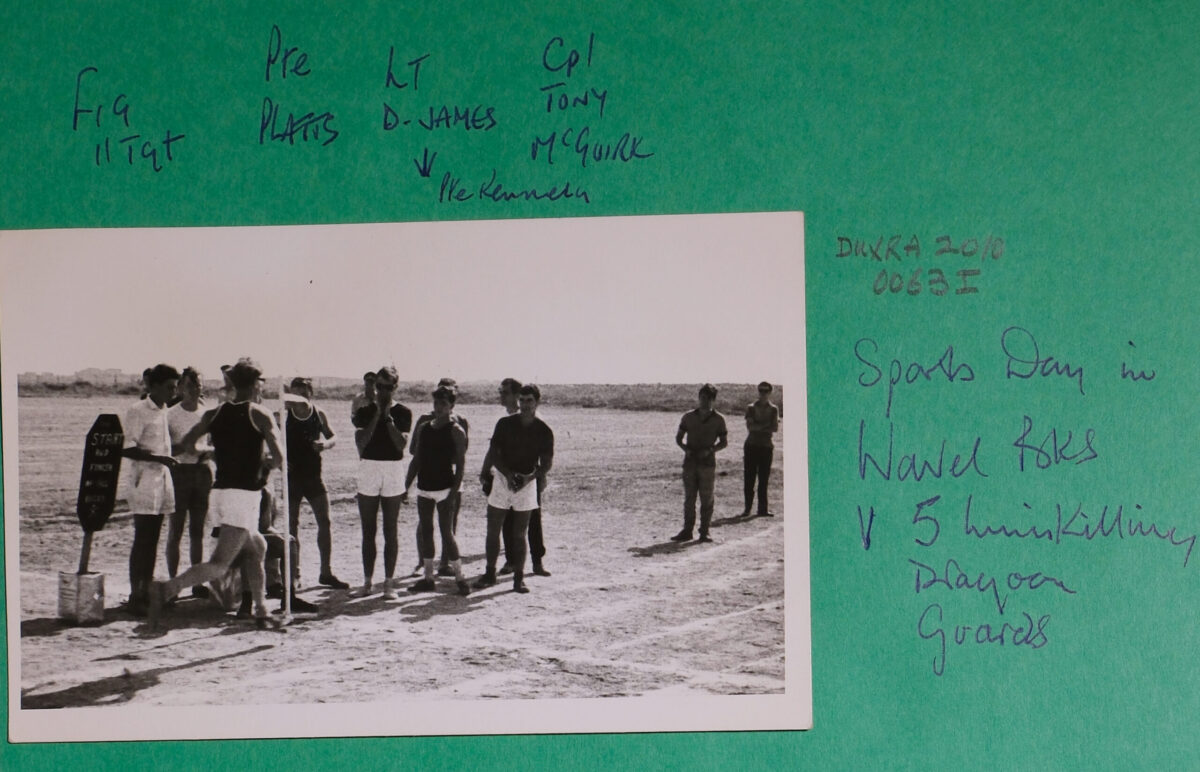 Pte
LT
Cpl
Fig
11 Tgt
PLATTS
D-JAMES
TONY
McGUIRK
Pte Kennedy
DUXRA 2010
0063 I
Sports Day in
Wavel BKS
V 5 Inniskilling
Dragoon
Guards
START
AND
FINISH